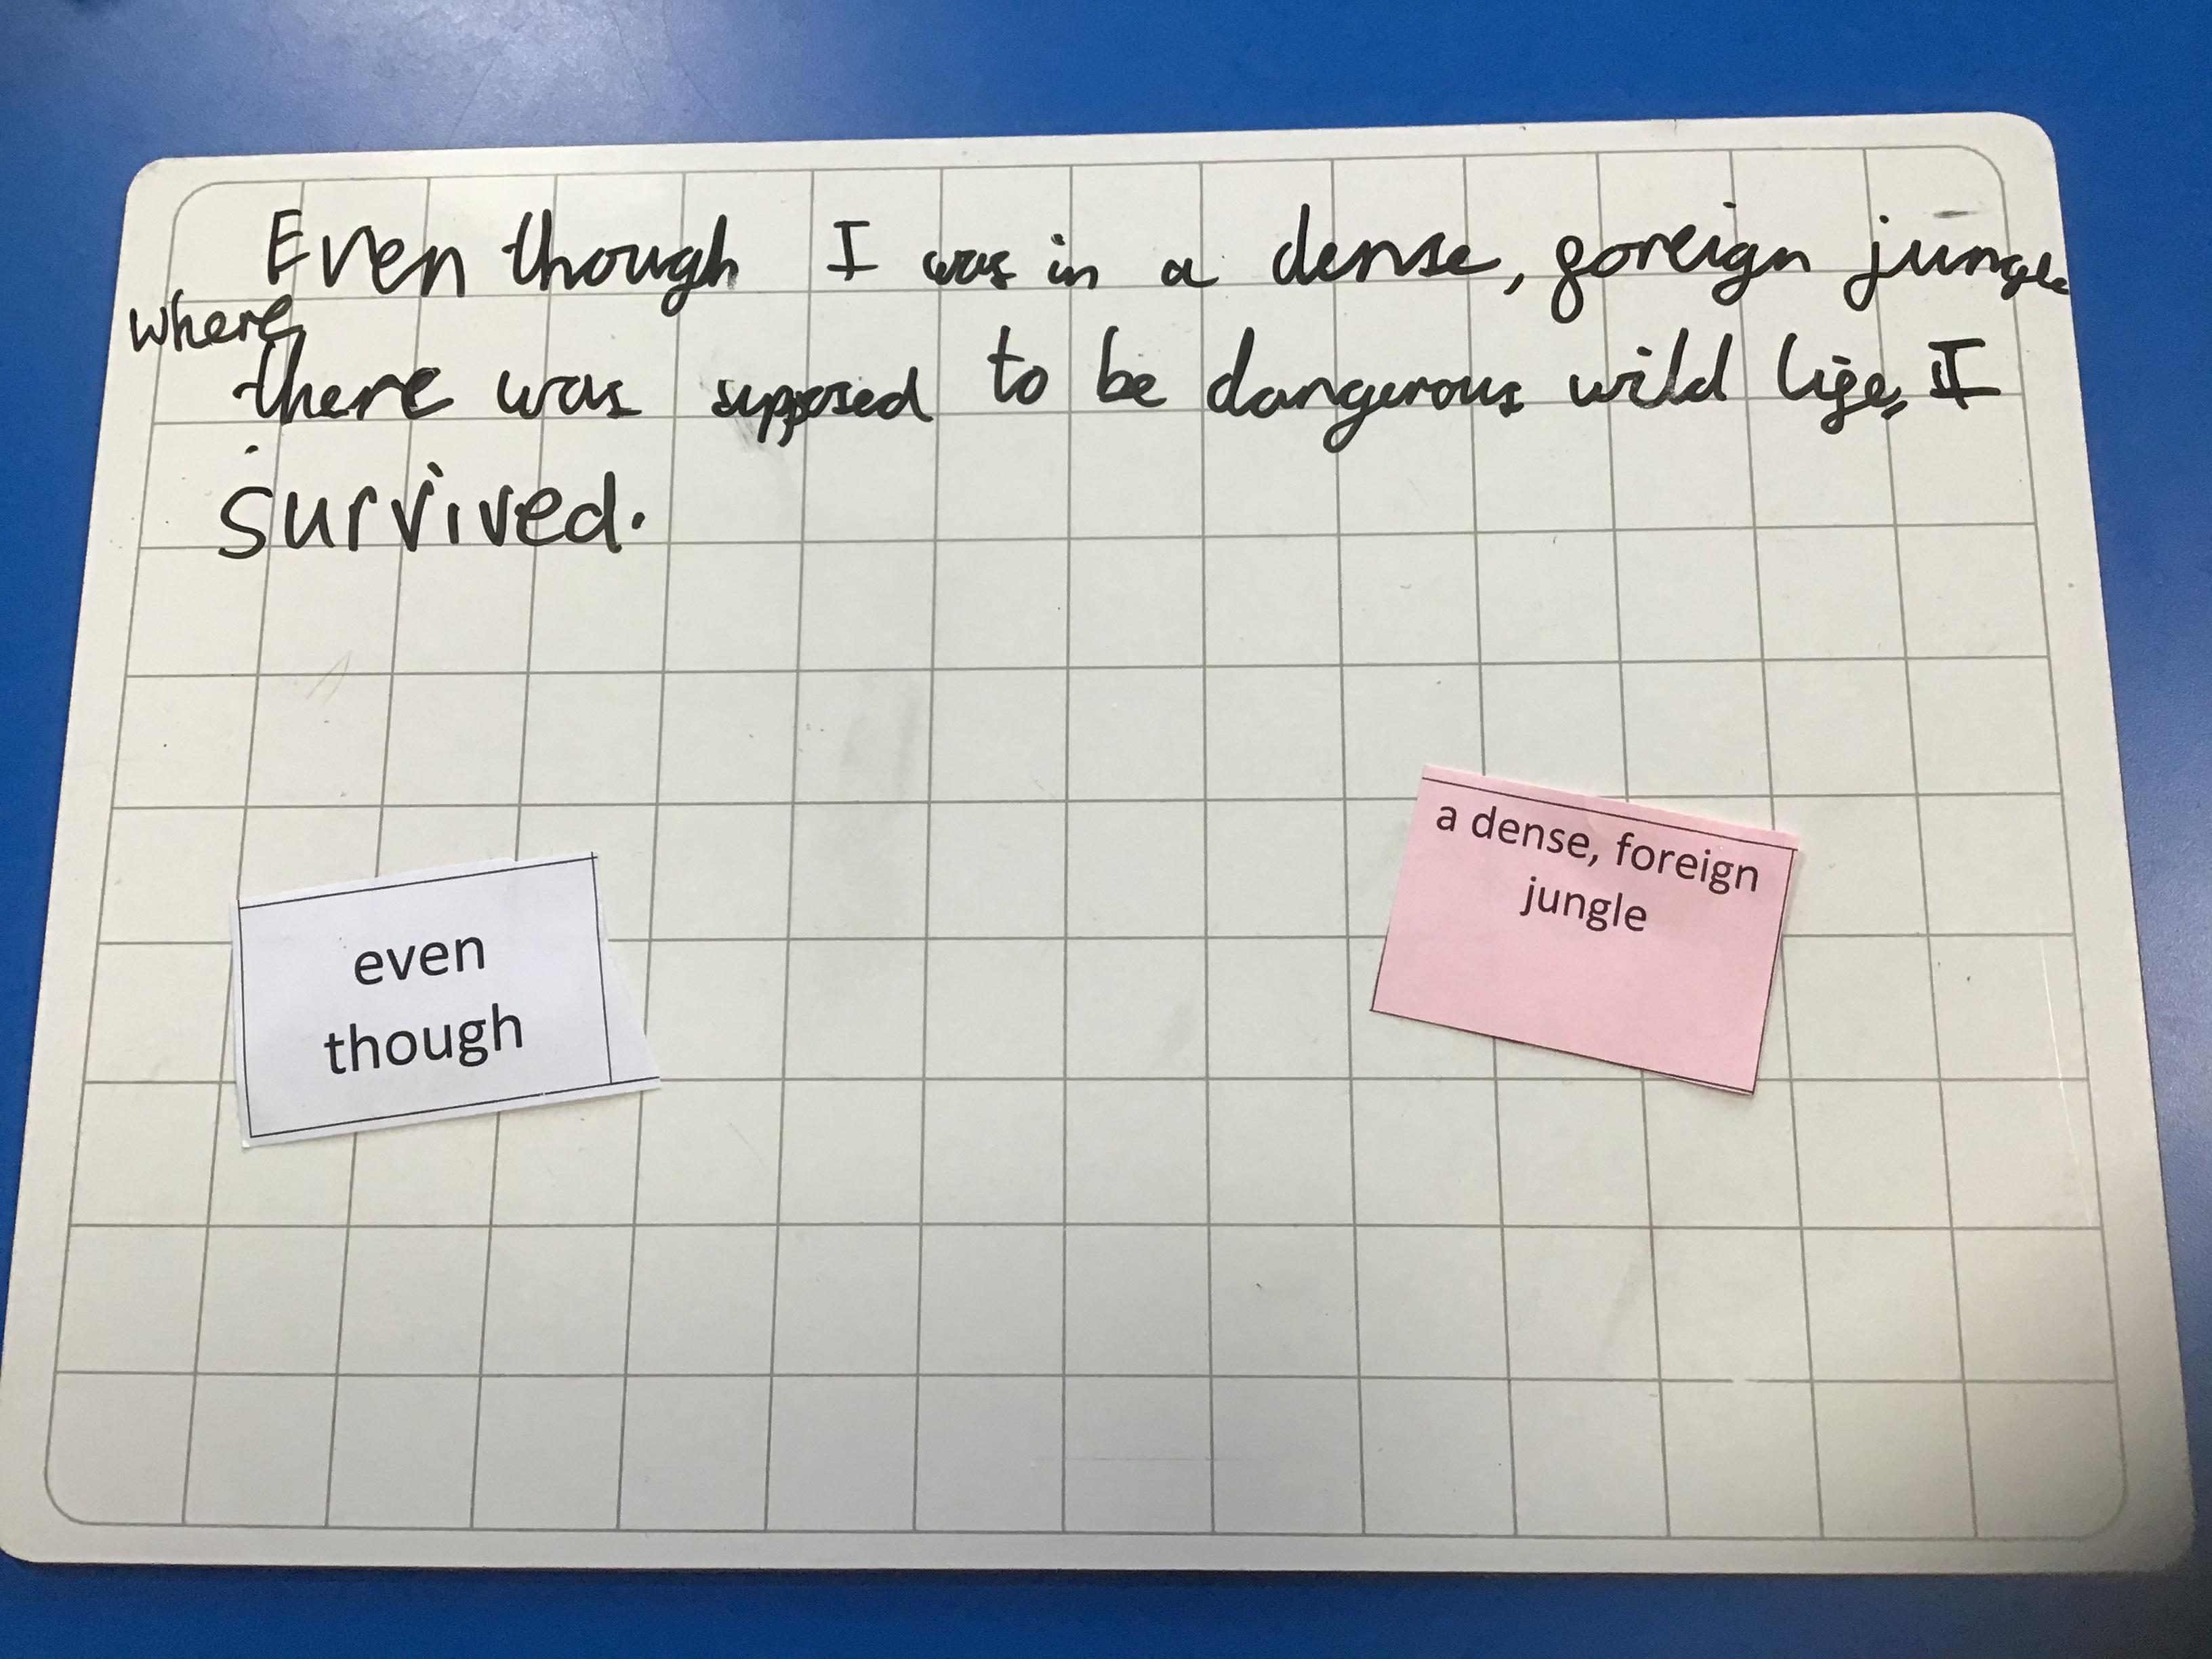 Even though I was in a dense, foreign jungle
where
there was supposed to be dangerous wild life, I
survived.
even
though
a dense, foreign
jungle